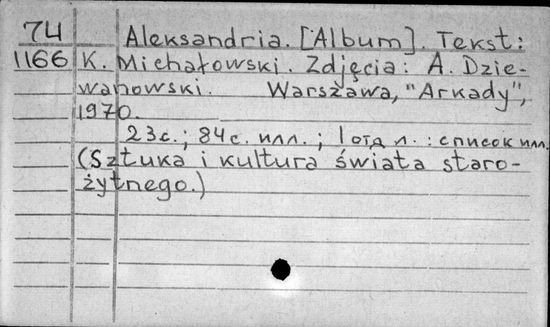 74 Aleksandria. [Album]. Tekst:
1166 K. Michałowski. Zdjęcia: A. Dzie-
wanowski. Warszawa, "Arkady",
1970.
23с.; 84с. илл.; 1 отд л.: список илл.
(Sztuka i kultura świata staro-
żytnego.)